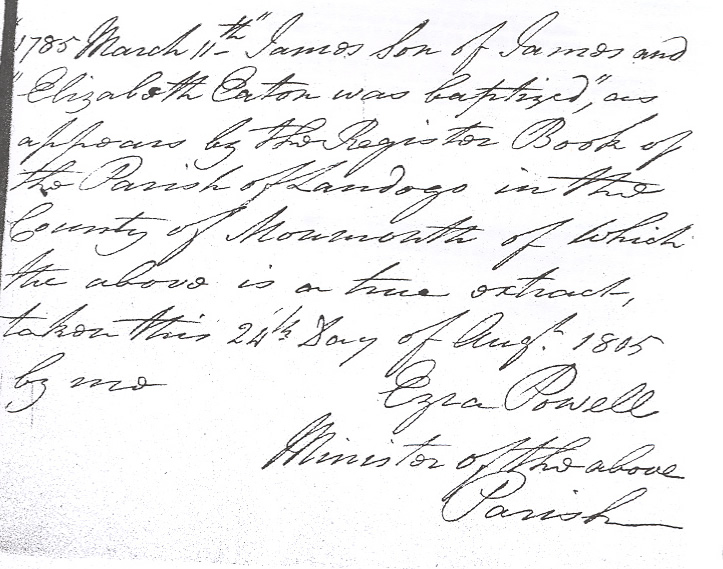 "1785 March 11th" James Son of James and
"Elizabeth Eaton was baptized", as
appears by the Register Book of
the Parish of Landogo in the
County of Monmouth of which
the above is a true extract,
taken this 24th Day of Augt. 1805
by me
Ezra Powell
Minister of the above
Parish